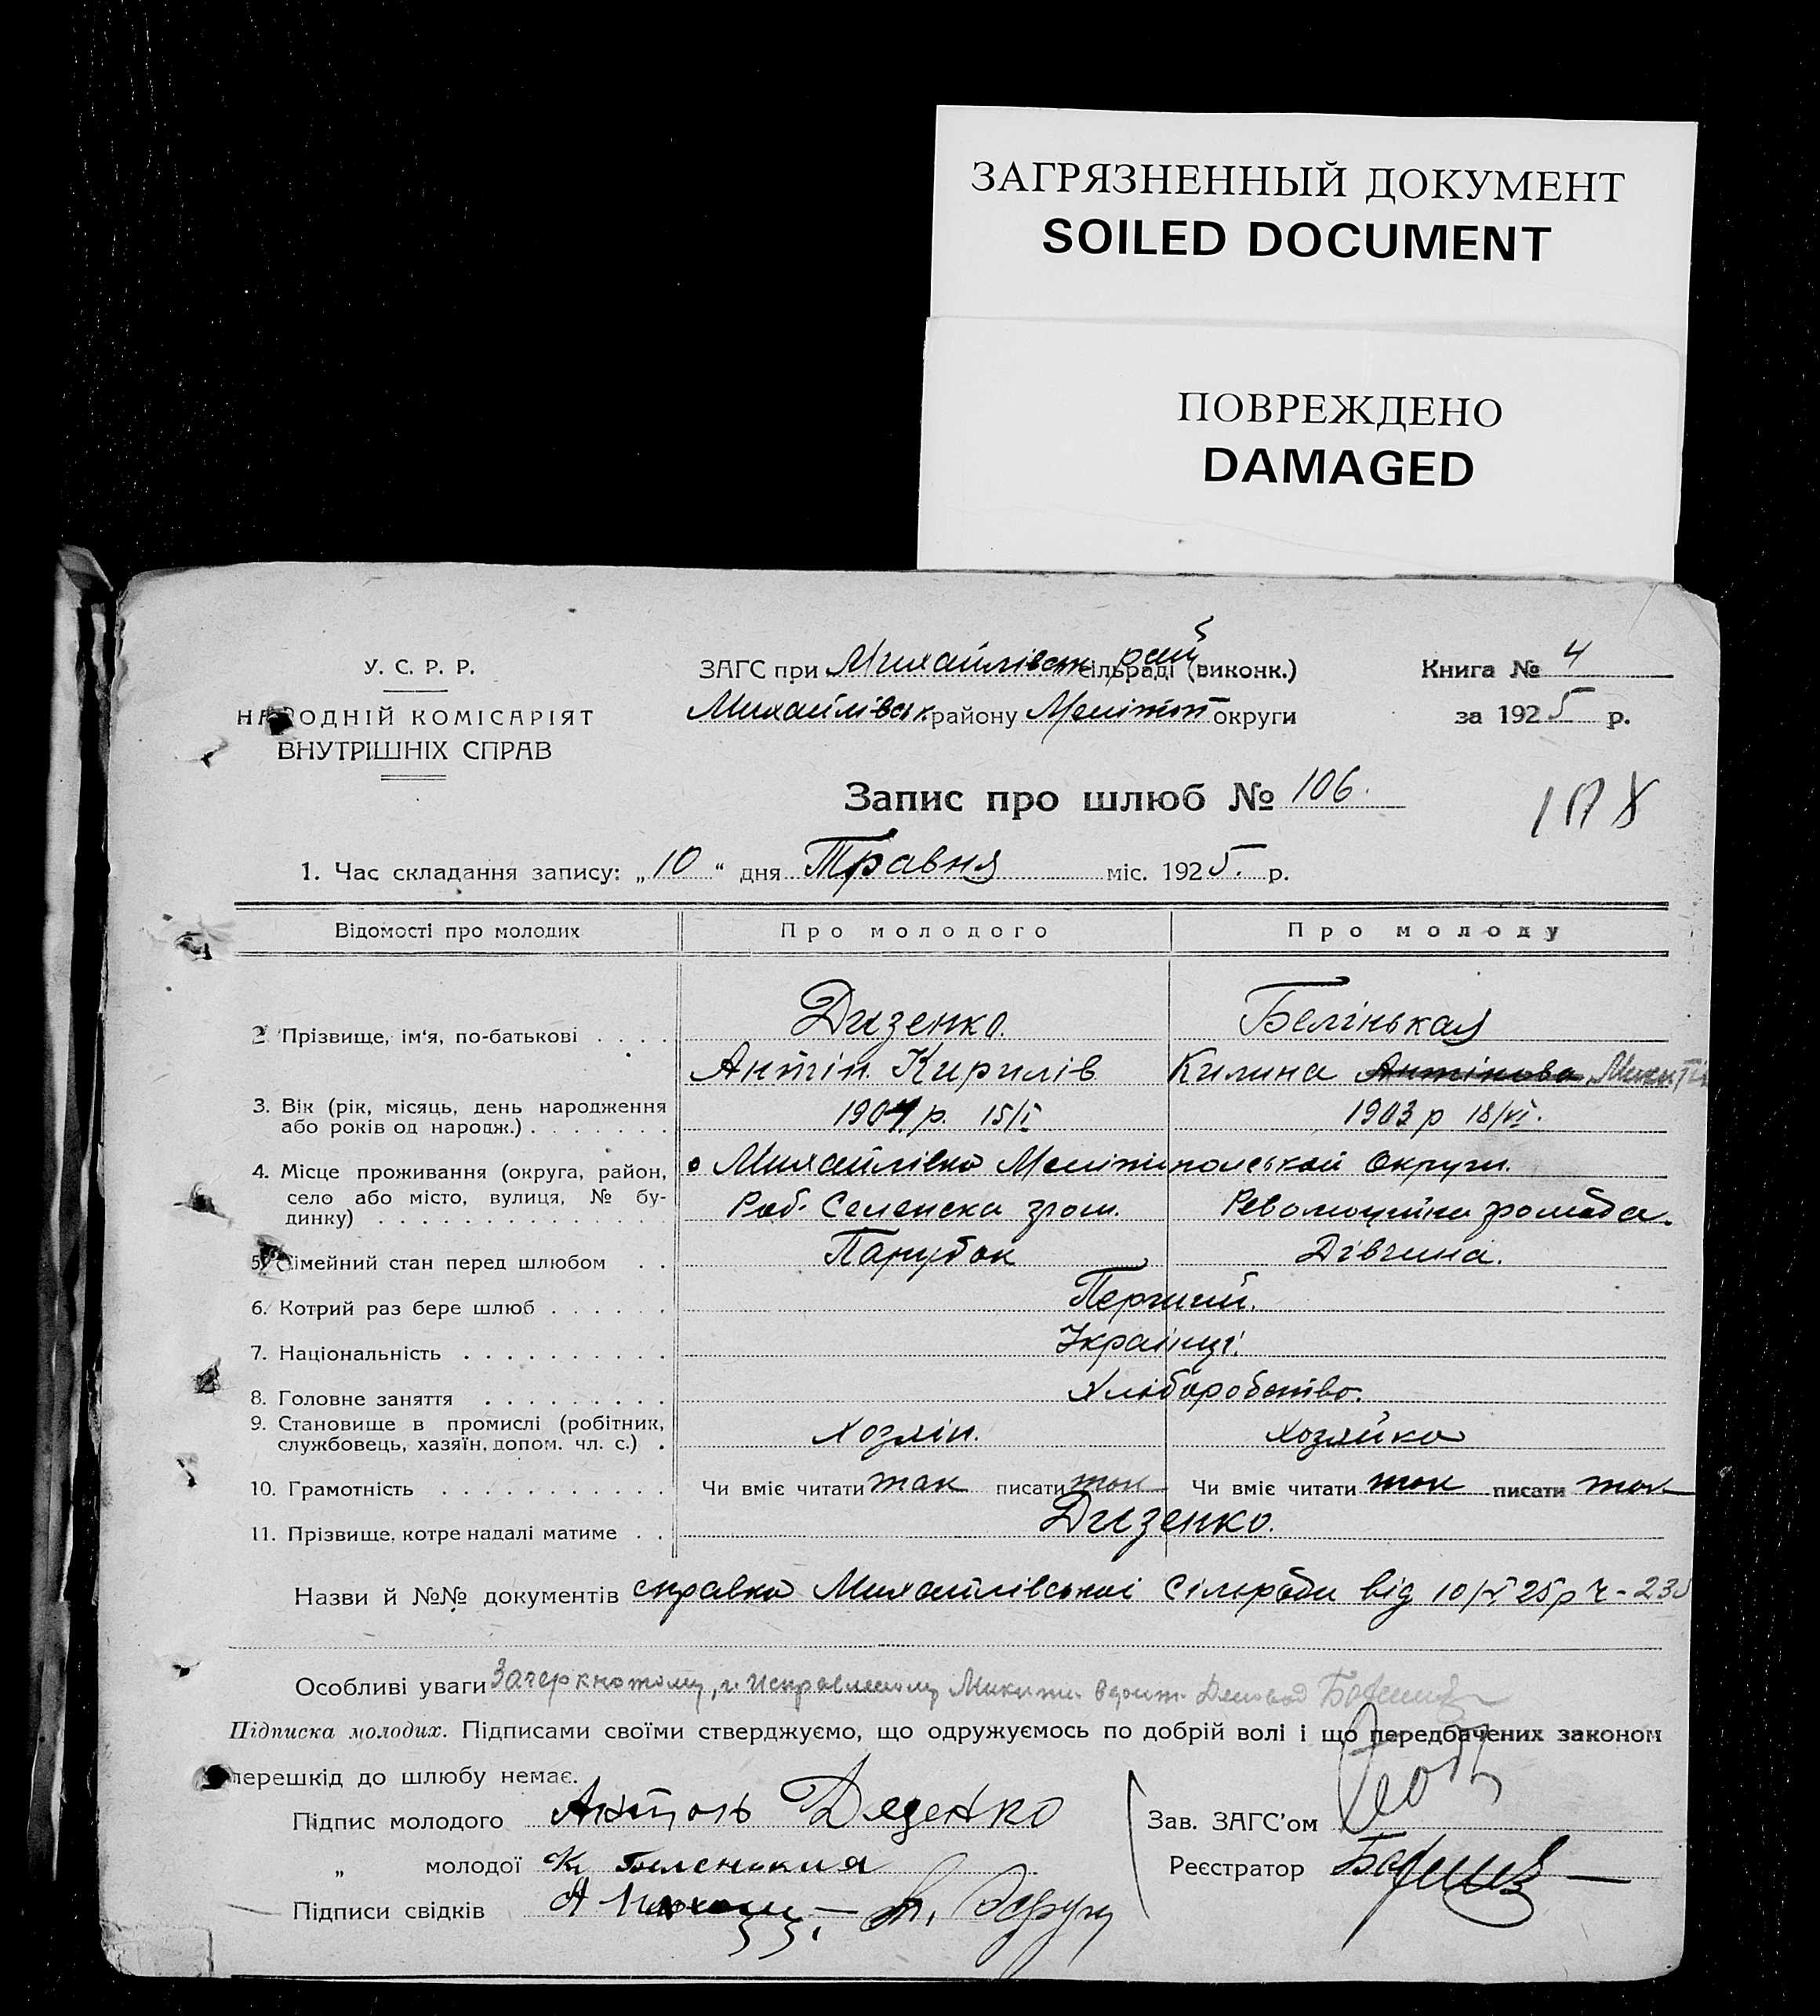 ЗАГРЯЗНЕННЫЙ ДОКУМЕНТ
SOILED DOCUMENT
ПОВРЕЖДЕНО
DAMAGED
У. С. Р. Р.
НАРОДНІЙ КОМІСАРІЯТ
ВНУТРІШНІХ СПРАВ
ЗАГС при Михайлівськ рай сільраді (виконк.)
Михайлівськ району Мелітоп округи
Книга № 4
за 1925 р.
Запис про шлюб № 106.
1. Час складання запису: „10“ дня Травня міс. 1925. р.
Відомості про молодих Про молодого Про молоду
2. Прізвище, ім'я, по-батькові Дизенко. Белінькая
Антін Кирилів Килина Антінова Микиті
3. Вік (рік, місяць, день народження
або років од народж.) 1904 р. 15/I 1903 р 18/VI.
4. Місце проживання (округа, район, Михайлівка Мелітипольской Округи.
село або місто, вулиця, № бу-
динку) Раб. Селенска гром. Революційна громада.
5. Сімейний стан перед шлюбом Парубок Дівчина.
6. Котрий раз бере шлюб Перший.
7. Національність Українці.
8. Головне заняття Хліборобство.
9. Становище в промислі (робітник,
службовець, хазяїн, допом. чл. с.) Хозяін. Хозяйка
10. Грамотність Чи вміє читати так писати так Чи вміє читати так писати так
11. Прізвище, котре надалі матиме Дизенко.
Назви й №№ документів справка Михайлівської Сільради від 10/V 25р Ч-23
Особливі уваги Зачеркнотому, и исправленому Микити
Підписка молодих. Підписами своїми стверджуємо, що одружуємось по добрій волі і що передбачених законом
перешкід до шлюбу немає.
Підпис молодого Антонь Дезенко
Зав. ЗАГС'ом
„ молодої К Беленькия
Реєстратор
Підписи свідків